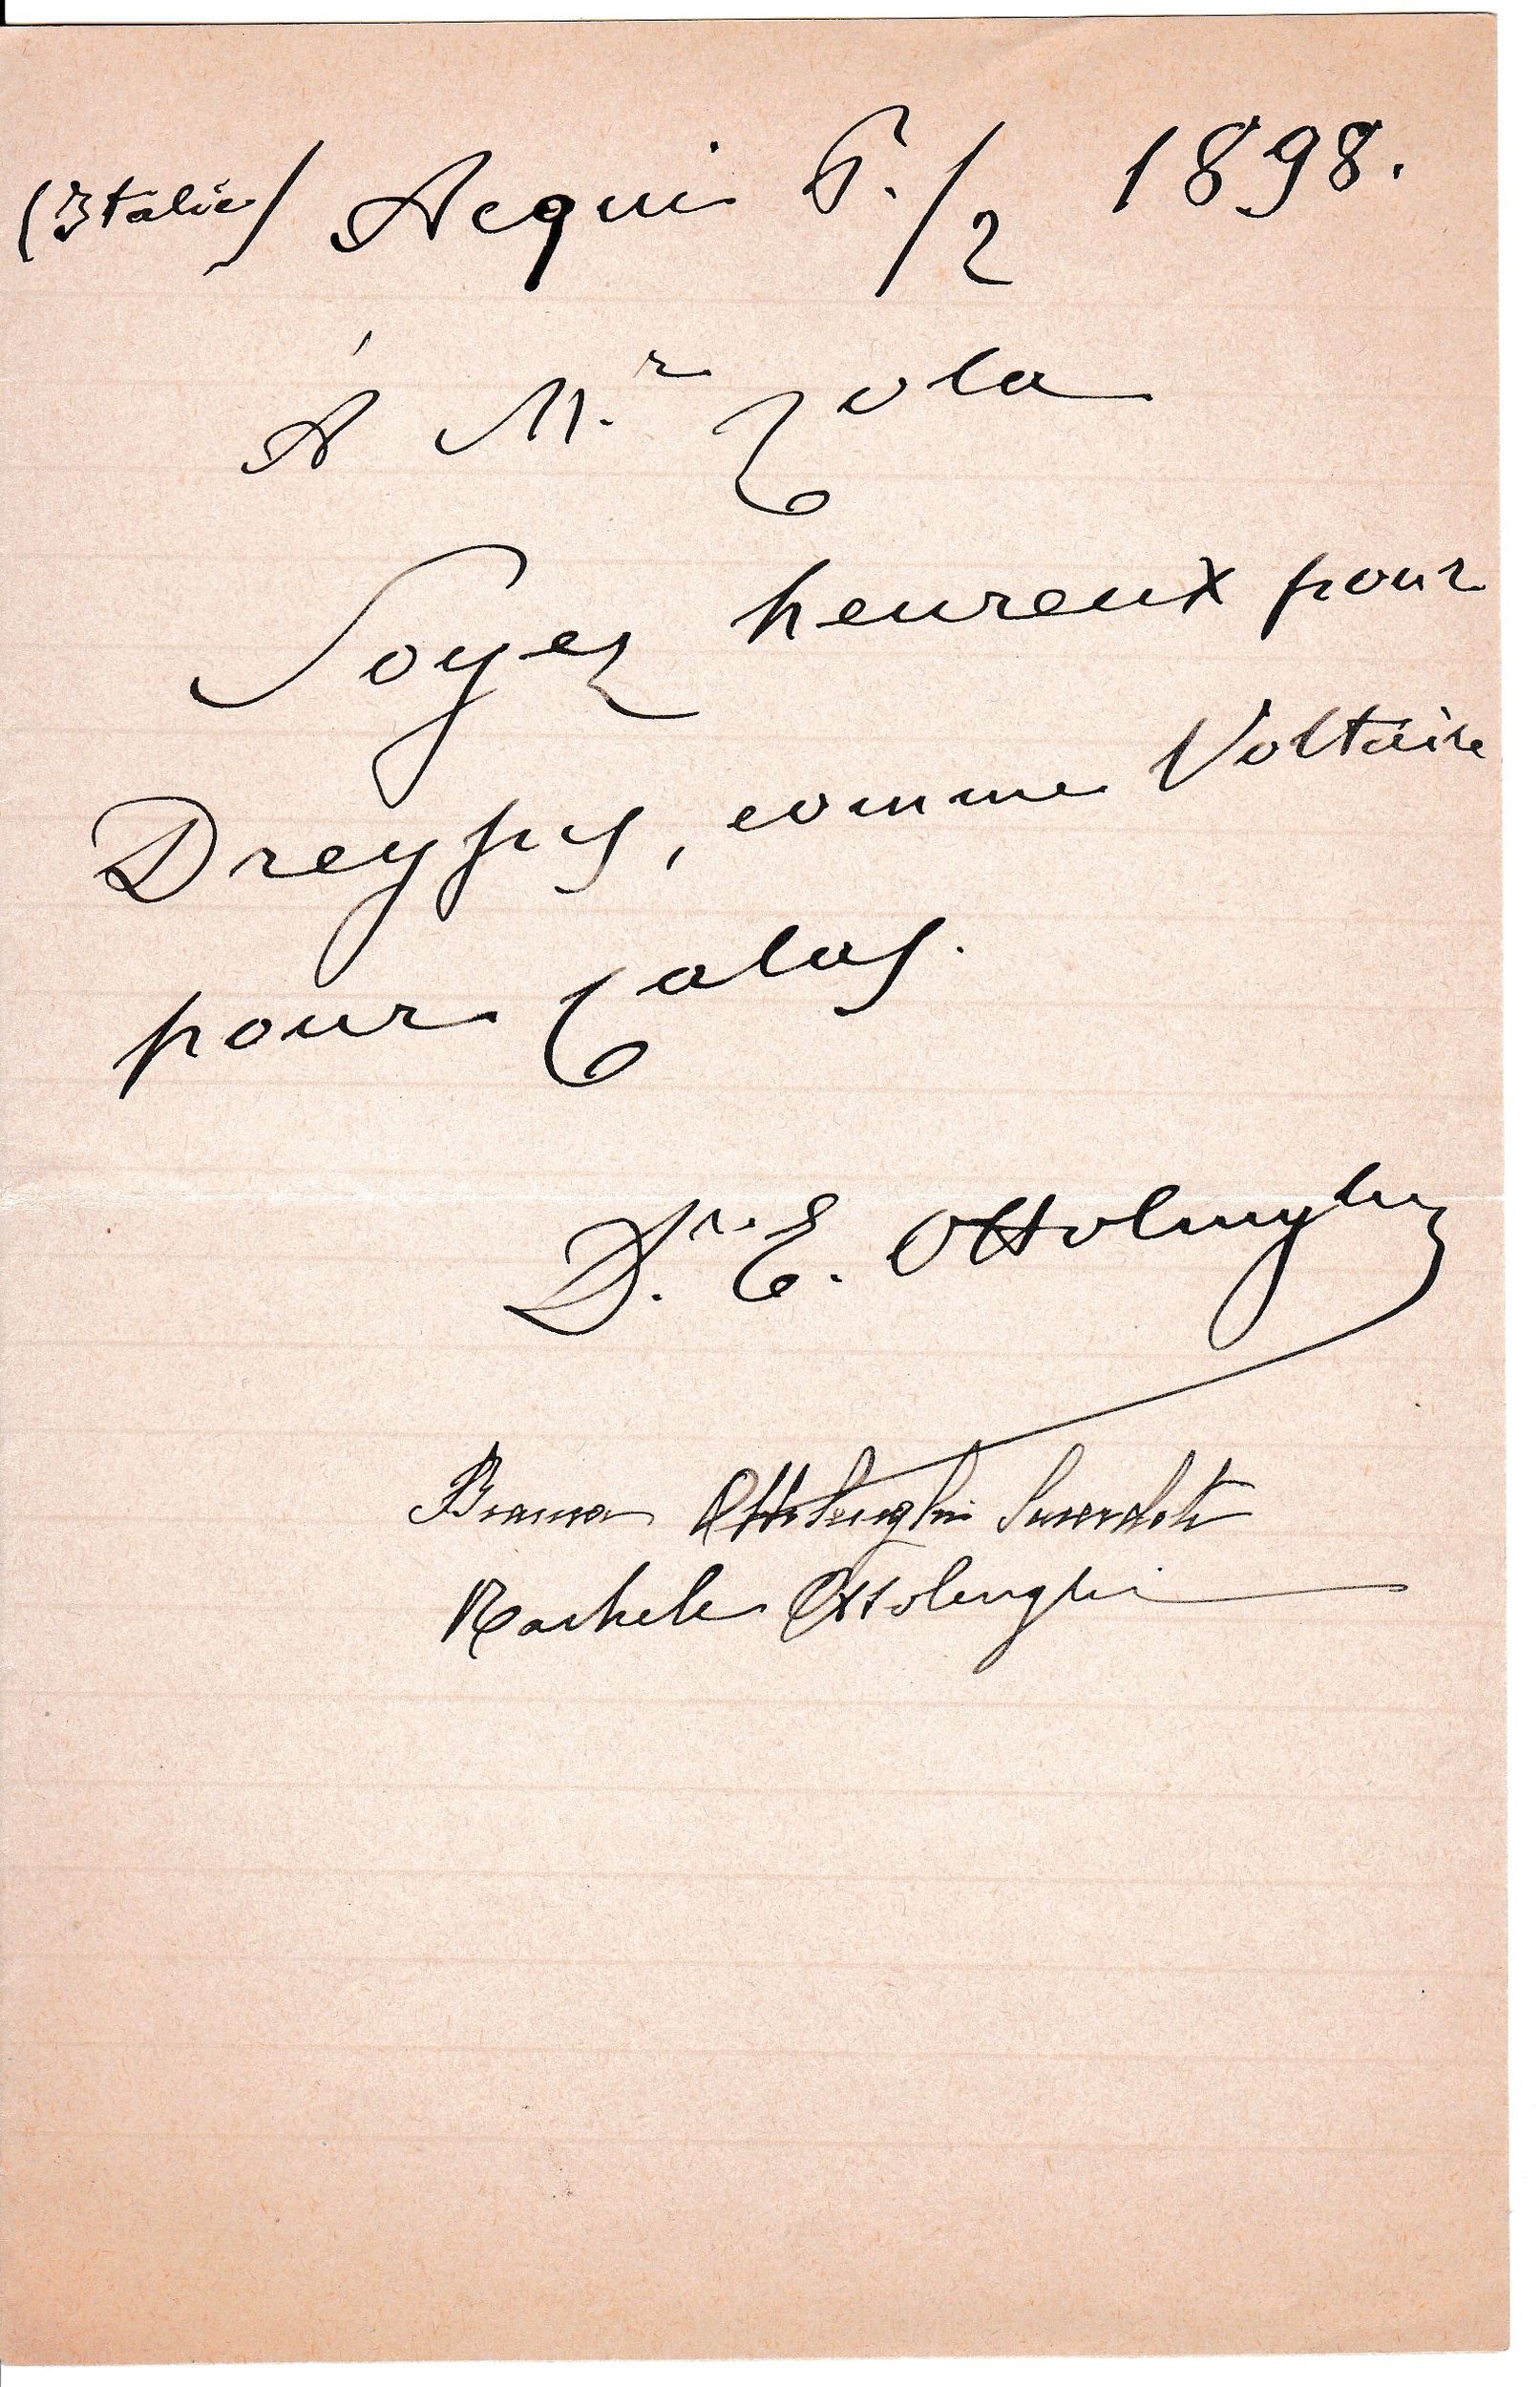 (Italie) Acqui 6./2 1898.
À M.r Zola
Soyez heureux pour
Dreyfus, comme Voltaire
pour Calas.
D.r E. Ottolenghi
Ottolenghi Sacerdoti
Rachele Ottolenghi